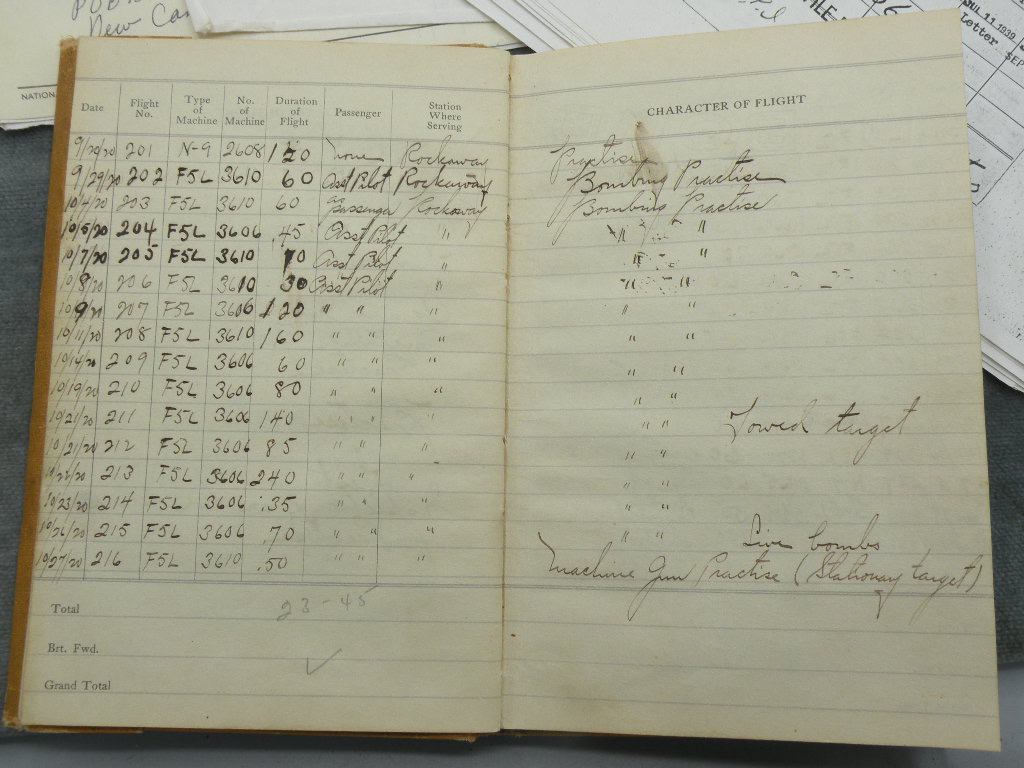 New Can
NATION
JUL 11 1939
Letter SEP
Date Flight No. Type of Machine No. of Machine Duration of Flight Passenger Station Where Serving CHARACTER OF FLIGHT
9/29/20 201 N-9 2608 120 None Rockaway Practise
9/29/20 202 F5L 3610 60 Asst Pilot Rockaway Bombing Practise
10/4/20 203 F5L 3610 60 Passenger Rockaway Bombing Practise
10/5/20 204 F5L 3606 .45 Asst Pilot " " "
10/7/20 205 F5L 3610 70 Asst Pilot " " "
10/8/20 206 F5L 3610 30 Asst Pilot " " "
10/9/20 207 F5L 3606 120 " " " " "
10/11/20 208 F5L 3610 160 " " " " "
10/14/20 209 F5L 3606 60 " " " " "
10/19/20 210 F5L 3606 80 " " " " "
10/21/20 211 F5L 3606 140 " " " " " Towed target
10/21/20 212 F5L 3606 85 " " " " "
10/22/20 213 F5L 3606 240 " " " " "
10/23/20 214 F5L 3606 .35 " " " " "
10/26/20 215 F5L 3606 .70 " " " " " Live bombs
10/27/20 216 F5L 3610 .50 " " " Machine Gun Practise (Stationary target)
Total 23-45
Brt. Fwd.
Grand Total